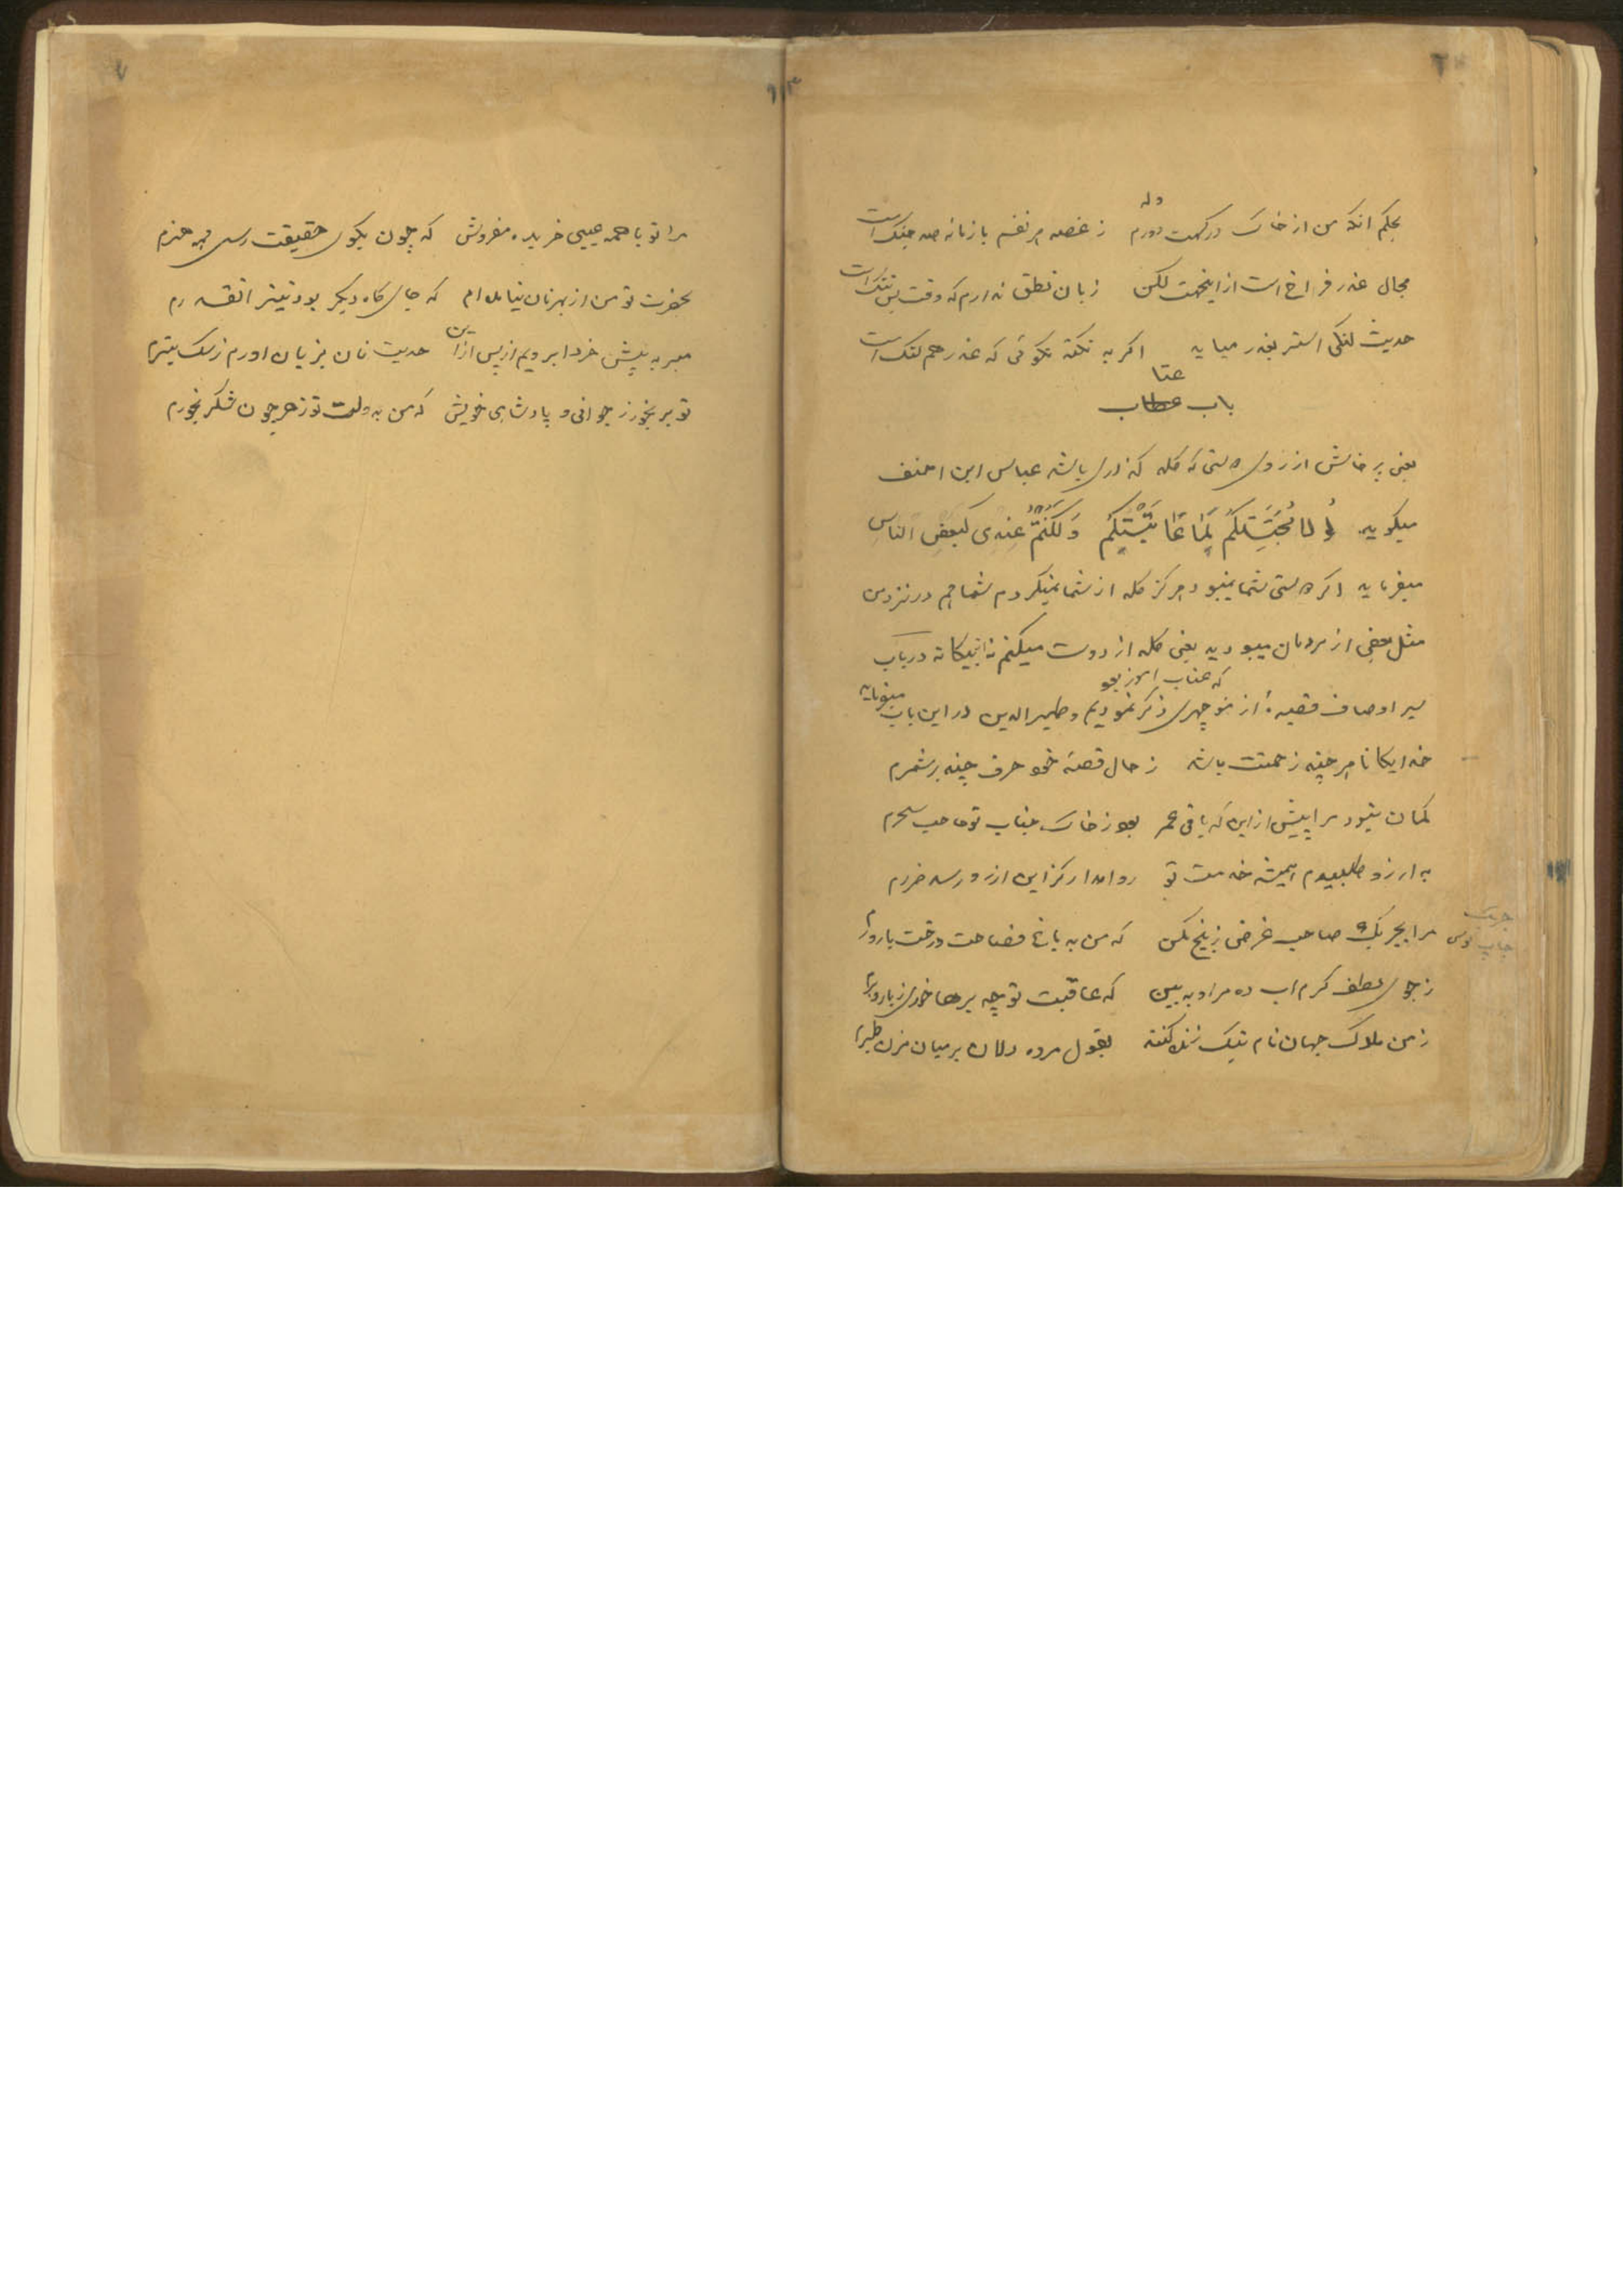 وله
بحکم انکه من از خاک درکهت دورم ز غصه هر نفسم با زمانه صد جنک است
مجال عذر فراخ است از اینجهت لکن زبان نطق ندارم که وقت بس تنک است
حدیث لنکی استر بعذر میاید اکر به نکته نکوئی که عذر هم لنک است
عتا
باب عطاب
یعنی پرخاش از روی دوستی که کله کذاری باشد عباس ابن احنف
میکوید لولا محبتکم لما عاتبتکم ولکنتم عندی کبعض الناس
میفرماید اکر دوستی شما نمیبود هرکز کله از شما نمیکردم شما هم در نزد من
مثل بعضی از مردمان میبودید یعنی کله از دوست میکنم نه از بیکانه در باب
که عتاب امیز بود
سیر اوصاف قصیدهٔ از منوچهری ذکر نمودیم و ظهیرالدین در این باب میفرماید
خدایکانا هر چند زحمتت باشد ز حال قصهٔ خود حرف چند برشمرم
کمان نبود مرا پیش از این که باقی عمر بود ز خاک جناب تو حاجب سحرم
به ارزو طلبیدم همیشه خدمت تو روا مدار کز این ارزو رسد ضررم
مرا بجربک صاحب غرض ز بیخ مکن که من به باغ فصاحت درخت بارورم
ز جوی لطف کرم اب ده مرا و به بین که عاقبت تو چه برها خوری ز بار و برم
ز من ملوک جهان نام نیک زنده کنند بقول مرده دلان بر میان مزن تبرم
مرا تو با همه عیبی خریدهٔ مفروش که چون بکوی حقیقت رسی همه هنرم
بحضرت تو من از بهر نان نیامده ام که جای کاه دیکر بود نیز انقدرم
مبر به پیش خرد ابرویم از پس از این حدیث نان بزبان اورم ز سک بترم
تو بر بخور ز جوانی و پادشاهی خویش که من بدولت تو زهر چون شکر بخورم